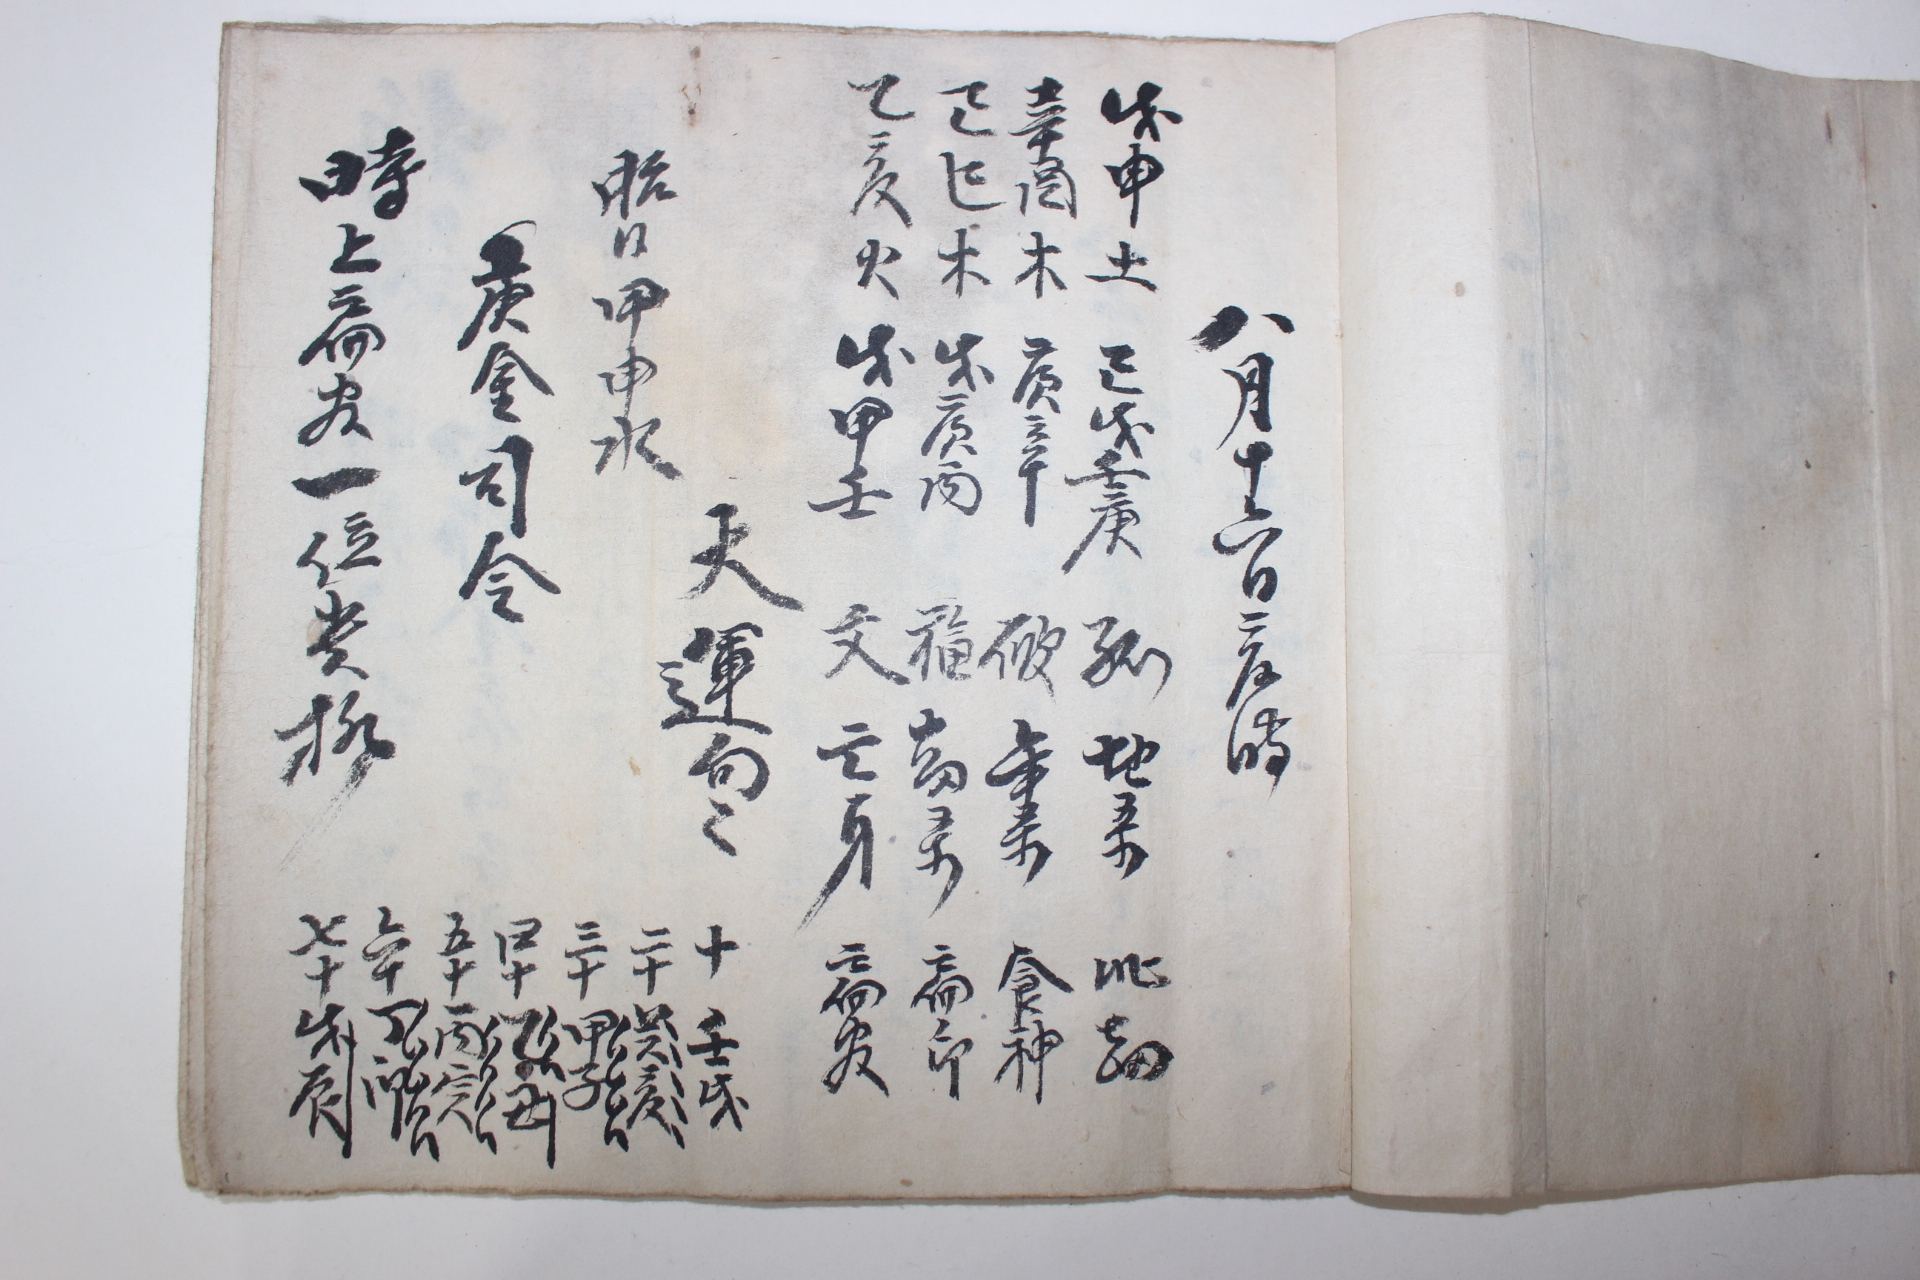 八月十六日亥時
戊申土 己戊壬庚 孤 地杀 比劫
辛酉木 庚辛 破 年杀 食神
己巳木 戊庚丙 福 杀 偏印
乙亥火 戊甲壬 文 亡身 偏官
天運
胎日甲申水
庚金司令
時上偏官一位貴格
十 壬戌
二十 癸亥
三十 甲子
四十 乙丑
五十 丙寅
六十 丁卯
七十 戊辰